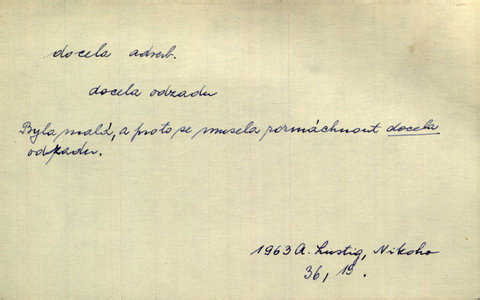 docela adverb.
docela odzadu
Byla malá, a proto se musela rozmáchnout docela
odzadu.
1963 A. Lustig, Nikoho
36, 19.